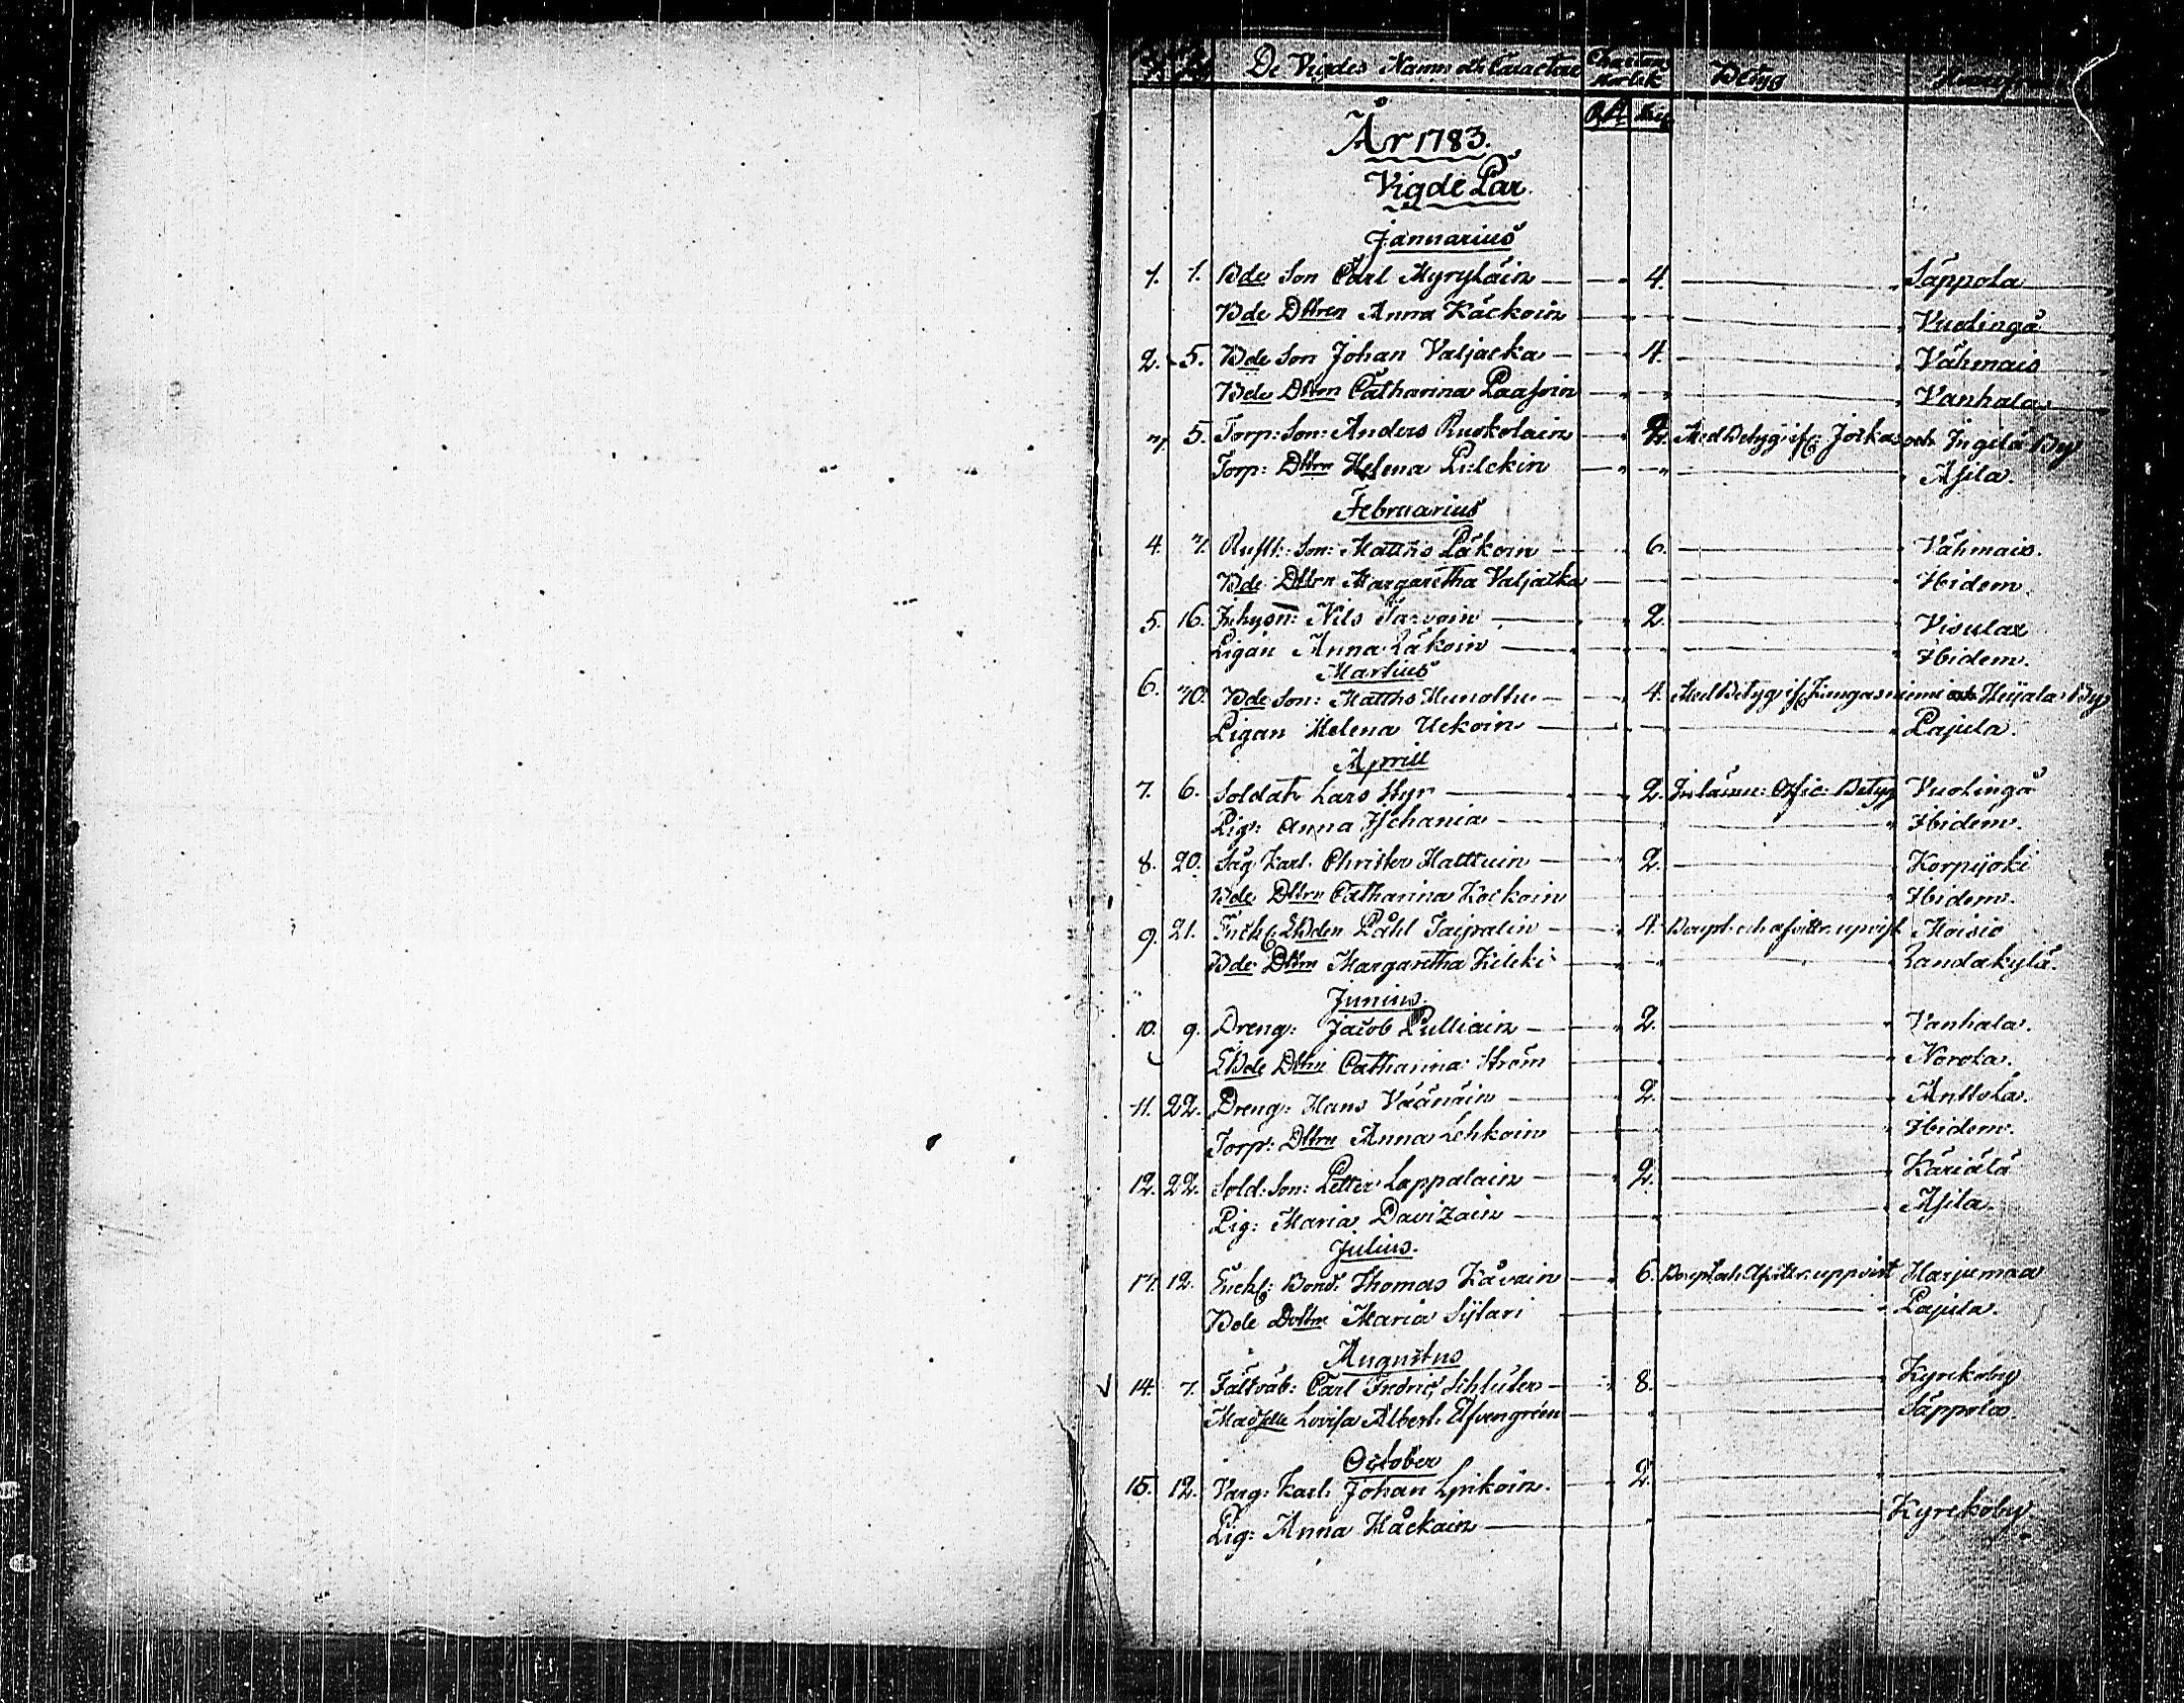 De Vigdes Namn och Caractere Charta Sigillat Storlek Betyg
År 1783.
Vigde Par.
Januarius
1. 1. Bde Son Carl Myryläin 4. Säppola
Bde Dttren Anna Käckoin Vuolingå
2. 5. Bde Son Johan Valjacka 4. Vähmais
Bde Dttren Catharina Paasoin Vanhala
5. Torp: Son: Anders Ruokolain 2. Med Betyg if: Jorkas och Ingilä By
Torp: Dttrn Helena Pulckin Asila.
Februarius
4. 7. Rustt: Son: Matths Läkoin 6. Vähmais.
Bde Dttrn Margaretha Valjacka Ibidem.
5. 16. Inhysn: Nils Tarvoin 2. Visulax
Pigan Anna Läkoin Ibidem.
Martius
6. 30. Bde Son: Matths Hunoltu 4. Med Betyg if Kangasniemi och Heijala By
Pigan Helena Uckoin Pajula.
Aprill
7. 6. Soldat Lars Styr 2. Inlämn: Offic: Betyg Vuolingå
Pig: Anna Ischania Ibidem.
8. 20. Såg Karl Christer Hattuin 2. Korpijoki
Bde Dttrn Catharina Kockoin Ibidem.
9. 21. Enckl: Påhl Taipalin 4. Moisio
Bde Dttrn Margaretha Kilcki Randakylä.
Junius.
10. 9. Dreng: Jacob Pulliain 2. Vanhala.
Dttrn Catharina Ström Norola.
11. 22. Dreng: Hans Väänäin 2. Anttola.
Torp: Dttrn Anna Lehkoin Ibidem.
12. 22. Sold: Son: Petter Lappalain 2. Käriälä
Pig: Maria Davizain Asila.
Julius.
12. Enckl: Bond: Thomas Kåvain 6. Harjumaa
Bde Dottrn Maria Sijlari Pajula.
Augustus
14. 7. Fältväb: Carl Fredric Schlüter 8. Kyrckoby
Madselle Lovisa Albert: Elfvengréen Säppola.
October
15. 12. Varg: Karl: Johan Lipikoin. 2.
Pig: Anna Håckain Kyrckoby